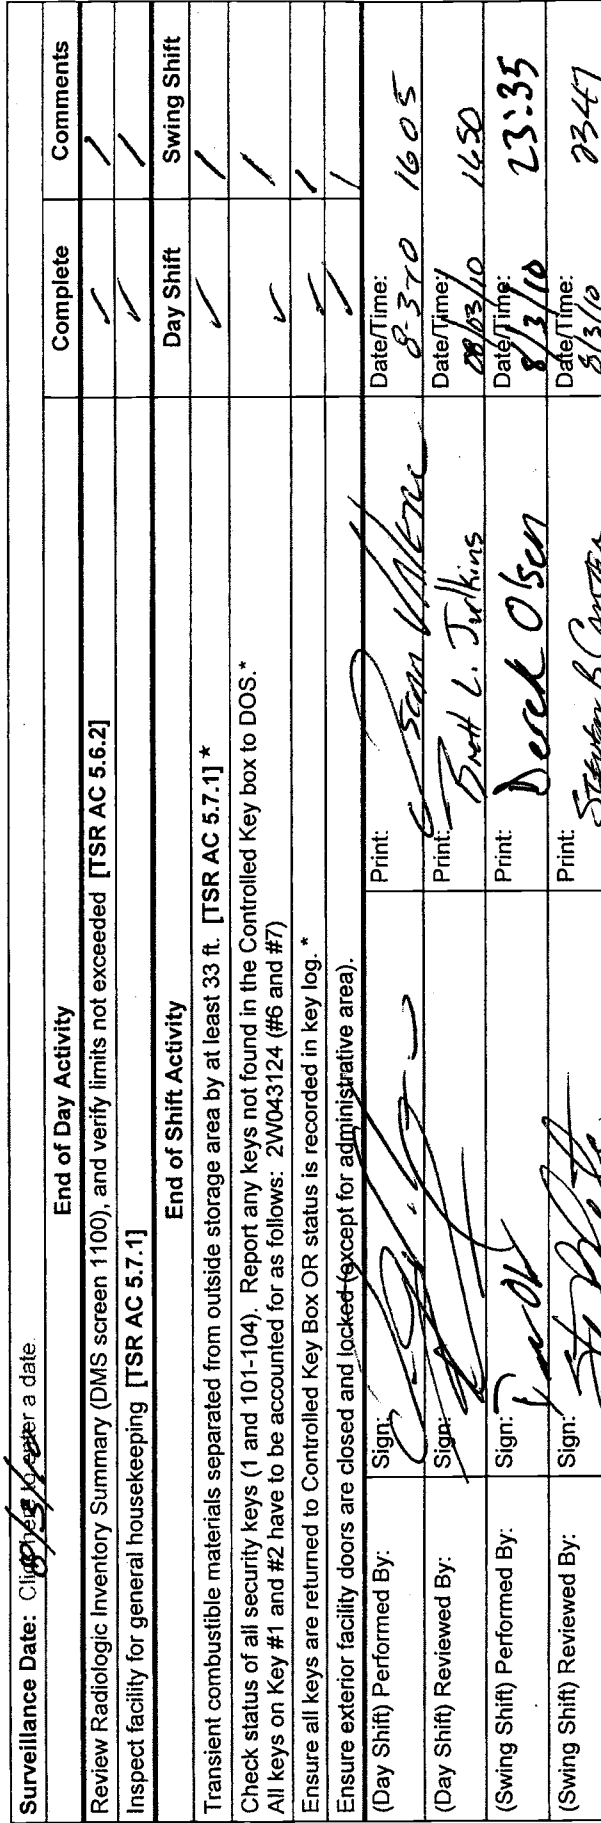 Surveillance Date: Click here to enter a date. 8/3/10
End of Day Activity Complete Comments
Review Radiologic Inventory Summary (DMS screen 1100), and verify limits not exceeded [TSR AC 5.6.2] ✓ /
Inspect facility for general housekeeping [TSR AC 5.7.1] ✓ /
End of Shift Activity Day Shift Swing Shift
Transient combustible materials separated from outside storage area by at least 33 ft. [TSR AC 5.7.1] * ✓ /
Check status of all security keys (1 and 101-104). Report any keys not found in the Controlled Key box to DOS.* ✓ /
All keys on Key #1 and #2 have to be accounted for as follows: 2W043124 (#6 and #7)
Ensure all keys are returned to Controlled Key Box OR status is recorded in key log. * ✓ /
Ensure exterior facility doors are closed and locked (except for administrative area). ✓ /
(Day Shift) Performed By: Sign: Print: Sean Date/Time: 8-3-10 1605
(Day Shift) Reviewed By: Sign: Print: Brett L. Judkins Date/Time: 08/03/10 1650
(Swing Shift) Performed By: Sign: Print: Derek Olsen Date/Time: 8/3/10 23:35
(Swing Shift) Reviewed By: Sign: Print: Steven R Date/Time: 8/3/10 2347